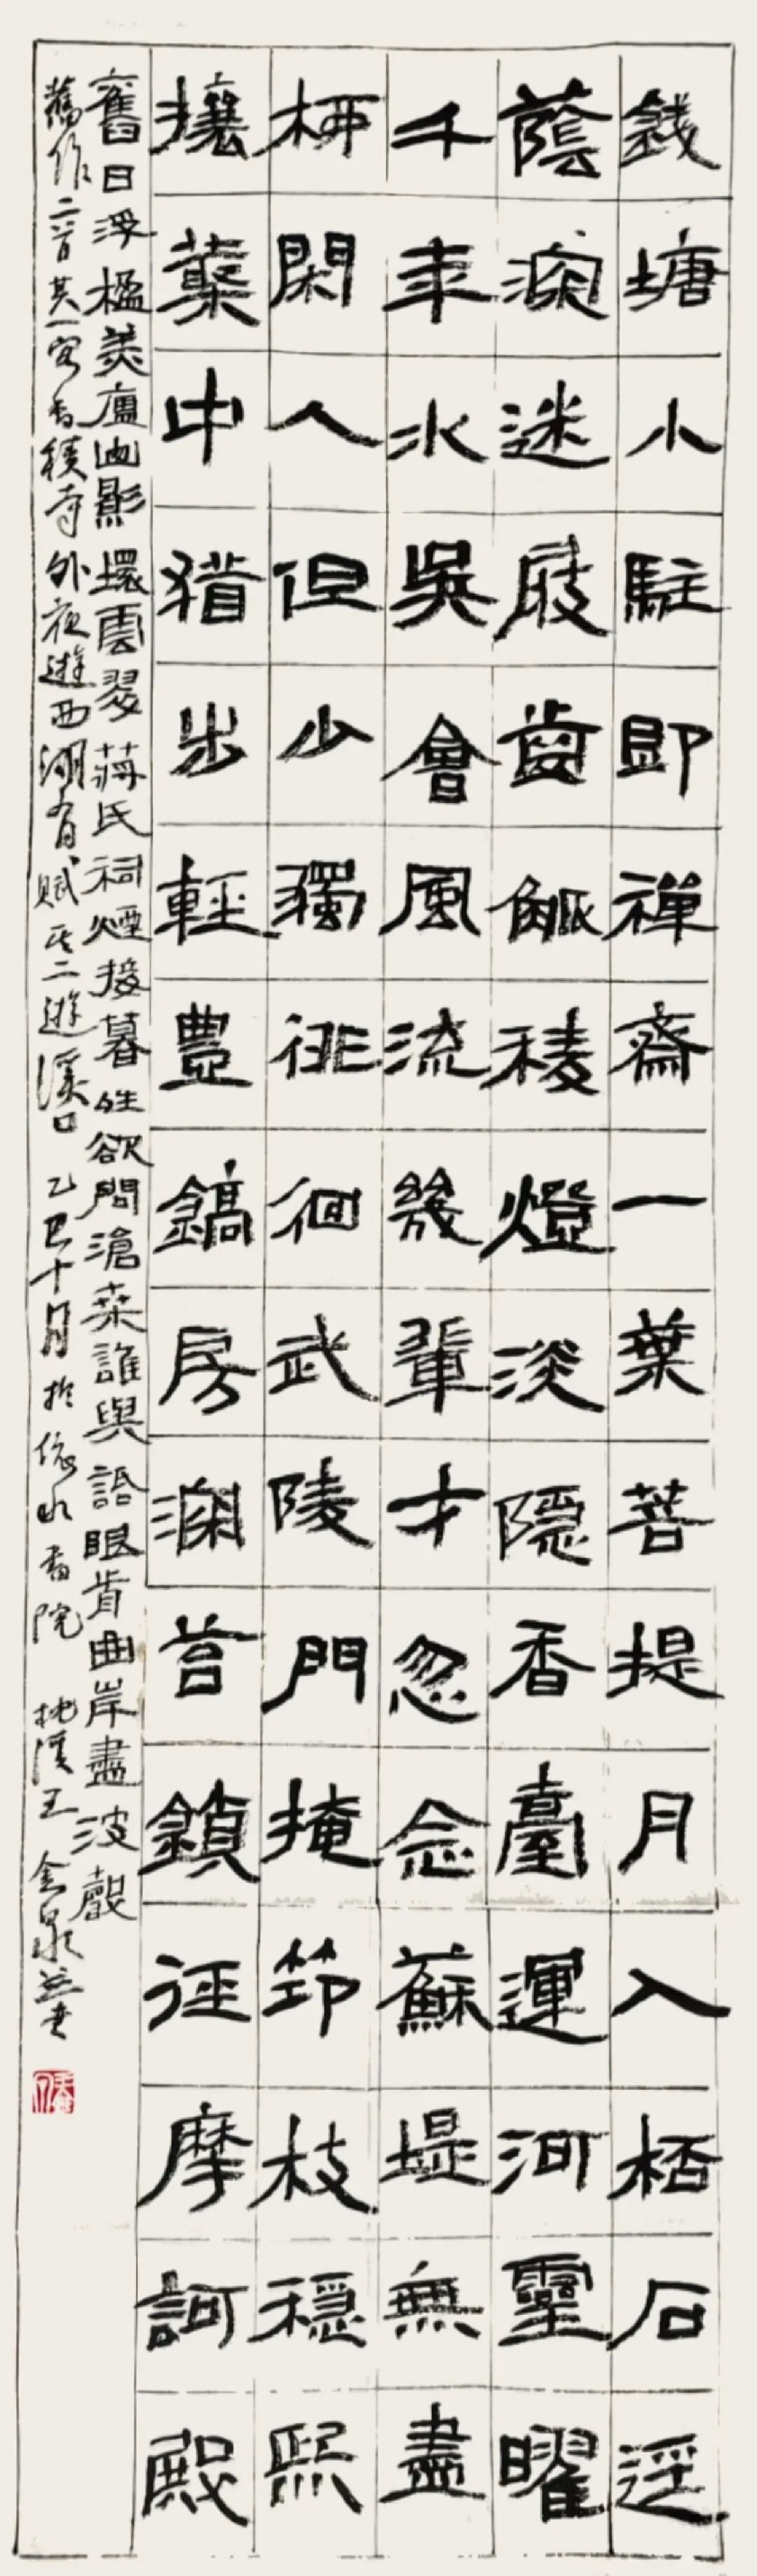 錢塘小駐即禪齋一葉菩提月入桮石逕
蔭深迷屐齒觚稜燈淡隱香臺運河靈曜
千年水吳會風流幾輩才忽念蘇堤無盡
柳閑人但少獨徘徊武陵門掩笻枝穩熙
攘叢中猶出輕豊鎬房深苔鎖徑摩訶殿
舊日浮楹美廬幽影環雲翠蔣氏祠煙接暮生欲問滄桑誰與語眼前曲岸盡波聲
舊作二首其一寓香積寺外夜遊西湖有賦其二遊溪口 乙巳十月於依水書院 桃溪王金泉並書